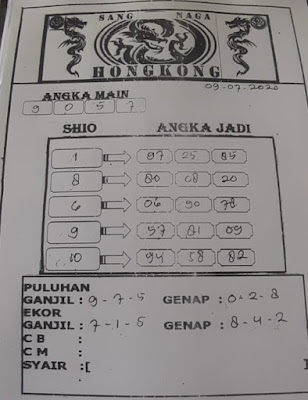 SANG NAGA
HONGKONG
09-07-2020
ANGKA MAIN
9 0 5 7
SHIO ANGKA JADI
1 97 25 85
8 80 08 20
6 06 90 78
9 57 81 09
10 94 58 82
PULUHAN
GANJIL : 9-7-5 GENAP : 0-2-8
EKOR
GANJIL : 7-1-5 GENAP : 8-4-2
C B :
C M :
SYAIR :[ ]